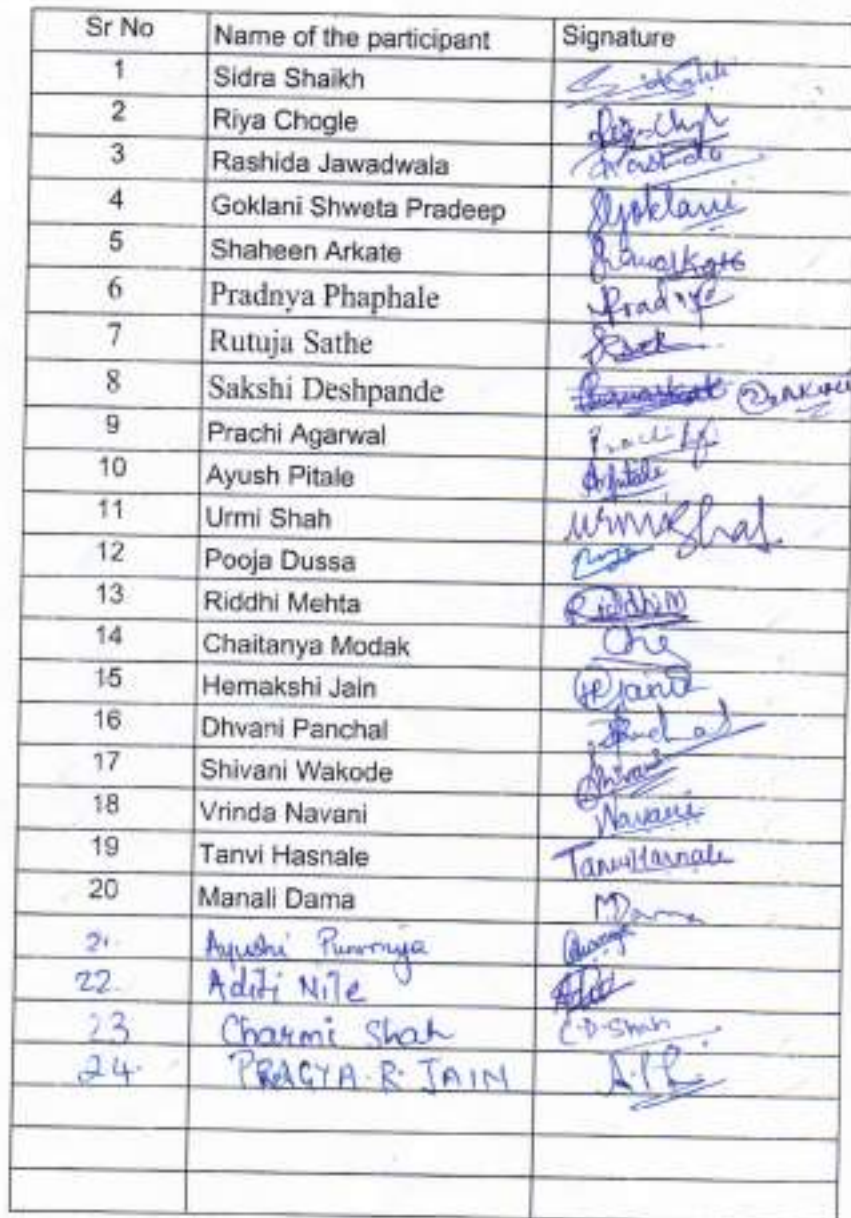 Sr No Name of the participant Signature
1 Sidra Shaikh
2 Riya Chogle
3 Rashida Jawadwala Rashida
4 Goklani Shweta Pradeep SGoklani
5 Shaheen Arkate
6 Pradnya Phaphale Pradnya
7 Rutuja Sathe
8 Sakshi Deshpande
9 Prachi Agarwal Prachi
10 Ayush Pitale Apitale
11 Urmi Shah Urmi Shah
12 Pooja Dussa Pooja
13 Riddhi Mehta RiddhiM
14 Chaitanya Modak
15 Hemakshi Jain
16 Dhvani Panchal
17 Shivani Wakode Shivani
18 Vrinda Navani Navani
19 Tanvi Hasnale Tanvi Hasnale
20 Manali Dama MDama
21. Ayushi
22. Aditi Nile
23 Charmi Shah C.D.Shah
24. PRAGYA.R. JAIN